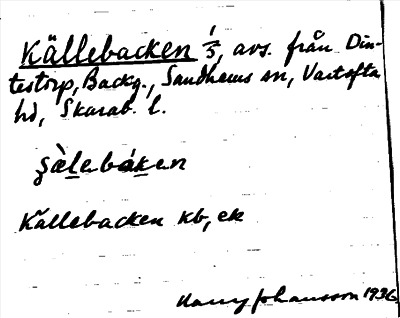 Källebacken 1/3, avs. från Din-
testorp, Backg., Sandhems sn, Vartofta
hd, Skarab. l.
şàlebáken
Källebacken kb, ek
Harry Johansson 1936